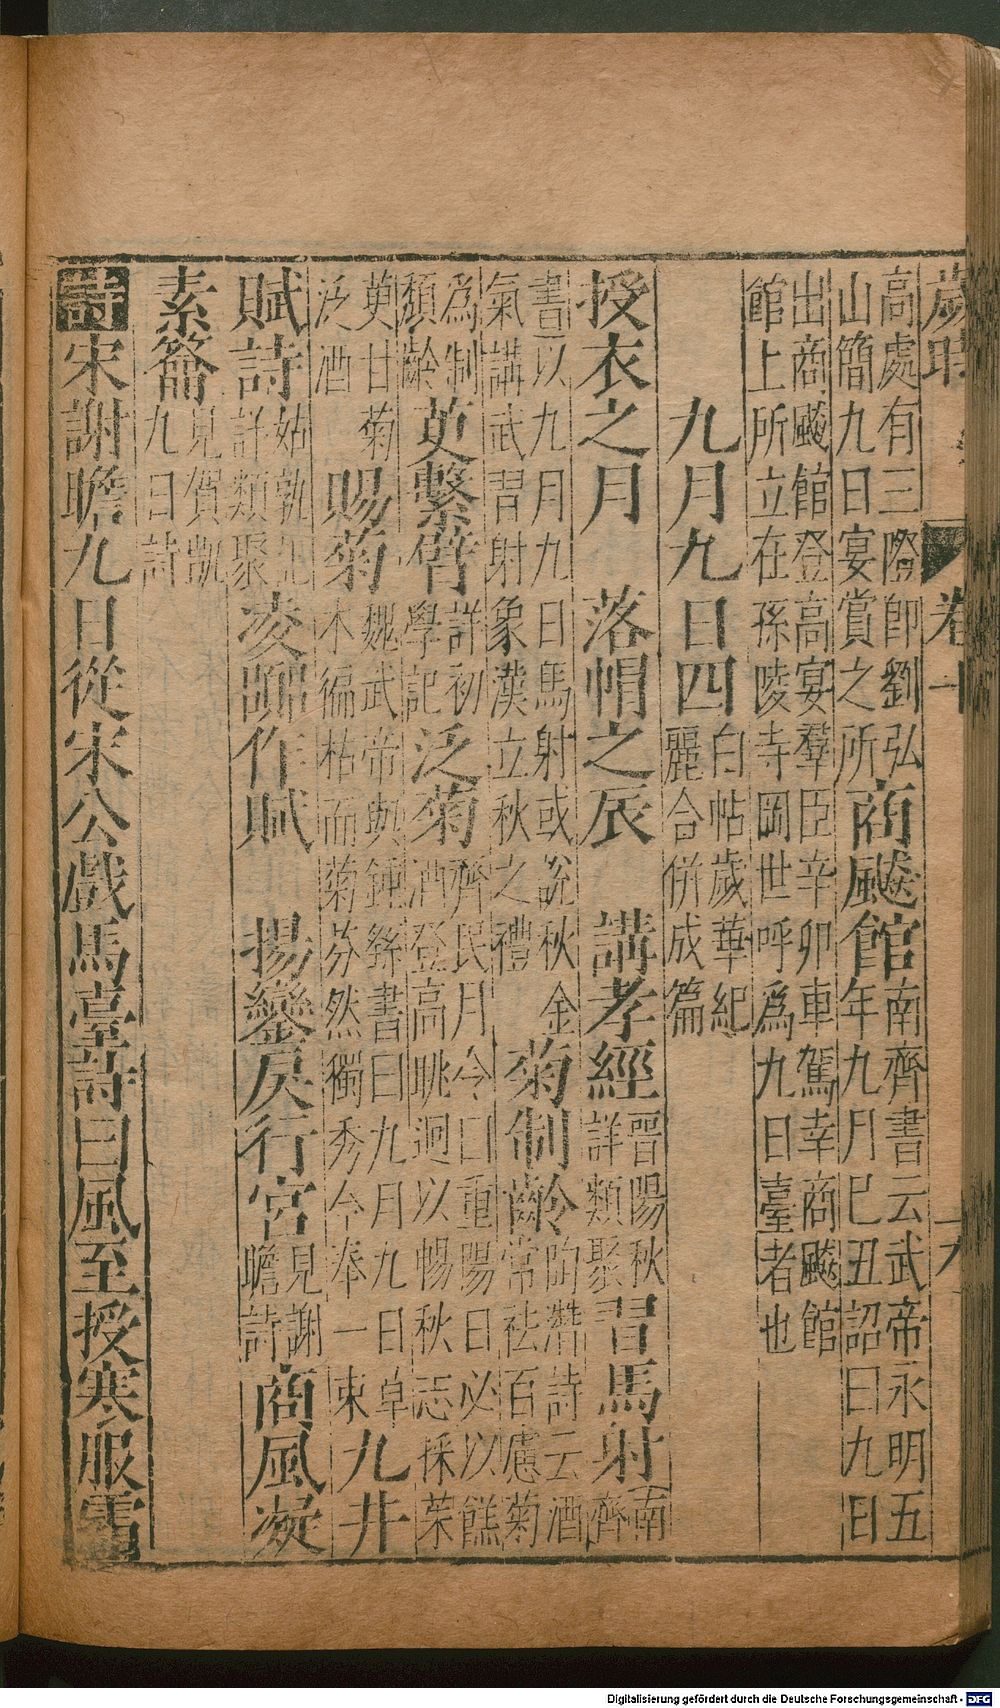 歲時 卷十 十六
高處有三際師劉弘
山簡九日宴賞之所
商飈館
南齊書云武帝永明五
年九月巳丑詔曰九日
出商飈館登高宴羣臣辛卯車駕幸商飈館
館上所立在孫陵寺岡世呼爲九日臺者也
九月九日四
白帖歲華紀
麗合併成篇
授衣之月 落帽之辰 講孝經
晉陽秋
詳類聚
習馬射
南
齊
書以九月九日馬射或說秋金
氣講武習射象漢立秋之禮
菊制齡
陶潛詩云酒
常祛百慮菊
為制
頹齡
茰繫臂
詳初
學記
泛菊
齊民月令曰重陽日必以餻
酒登高眺迥以暢秋志採茱
茰甘菊
泛酒
賜菊
魏武帝與鍾繇書曰九月九日卓
木徧枯而菊芬然獨秀今奉一束
九井
賦詩
姑孰記
詳類聚
凌踋作賦 揚鑾戾行宮
見謝
瞻詩
商風凝
素籥
見賀凱
九日詩
詩宋謝瞻九日從宋公戲馬臺詩曰風至授寒服霜
Digitalisierung gefördert durch die Deutsche Forschungsgemeinschaft - DFG